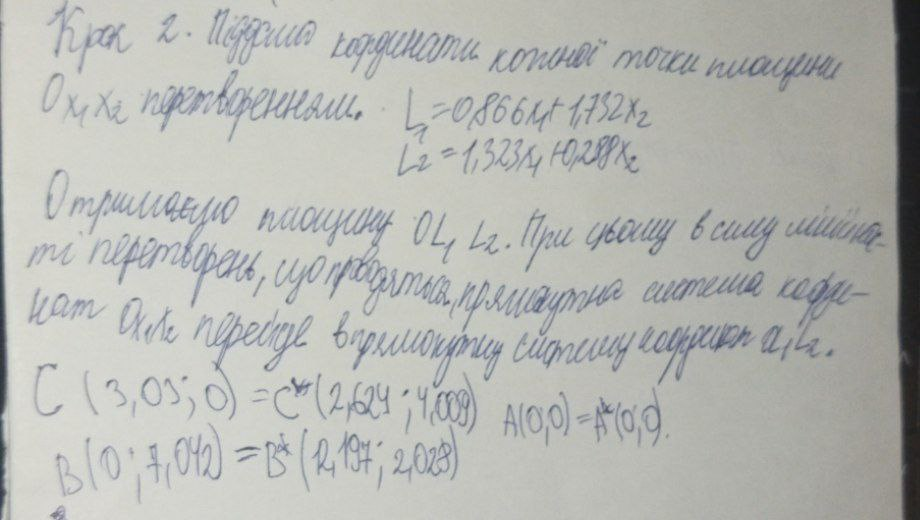 Крок 2. Піддамо координати кожної точки площини
Ox₁x₂ перетворенням. L₁=0,866x₁+1,732x₂
L₂=1,323x₁+0,288x₂
Отримаємо площину OL₁L₂. При цьому в силу лінійнос-
ті перетворень, що проводяться, прямокутна система коорди-
нат Ox₁x₂ перейде в прямокутну систему координат OL₁L₂.
C (3,03; 0) = C* (2,624; 4,009) A(0;0) = A*(0;0).
B(0; 7,042) = B* (12,197; 2,028)